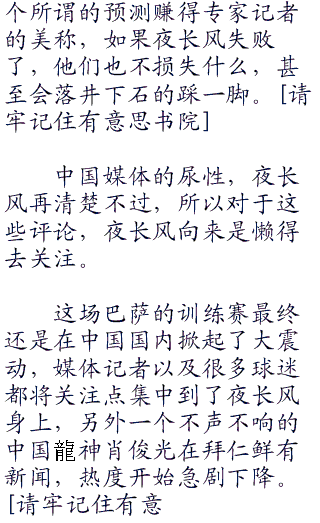 个所谓的预测赚得专家记者
的美称，如果夜长风失败
了，他们也不损失什么，甚
至会落井下石的踩一脚。[请
牢记住有意思书院]
中国媒体的尿性，夜长
风再清楚不过，所以对于这
些评论，夜长风向来是懒得
去关注。
这场巴萨的训练赛最终
还是在中国国内掀起了大震
动，媒体记者以及很多球迷
都将关注点集中到了夜长风
身上，另外一个不声不响的
中国龍神肖俊光在拜仁鲜有
新闻，热度开始急剧下降。
[请牢记住有意